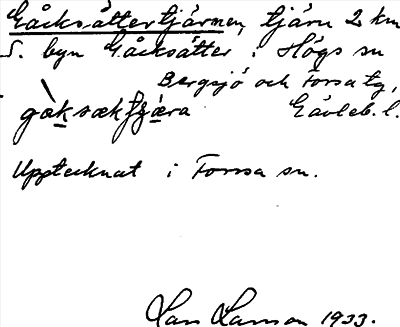 Gåcksättertjärnen, tjärn 2 km
S. byn Gåcksätter i Högs sn
Bergsjö och Forsa tg,
gåksækſʒæra Gävleb. l.
Upptecknat i Forssa sn.
Lars Larsson 1933.